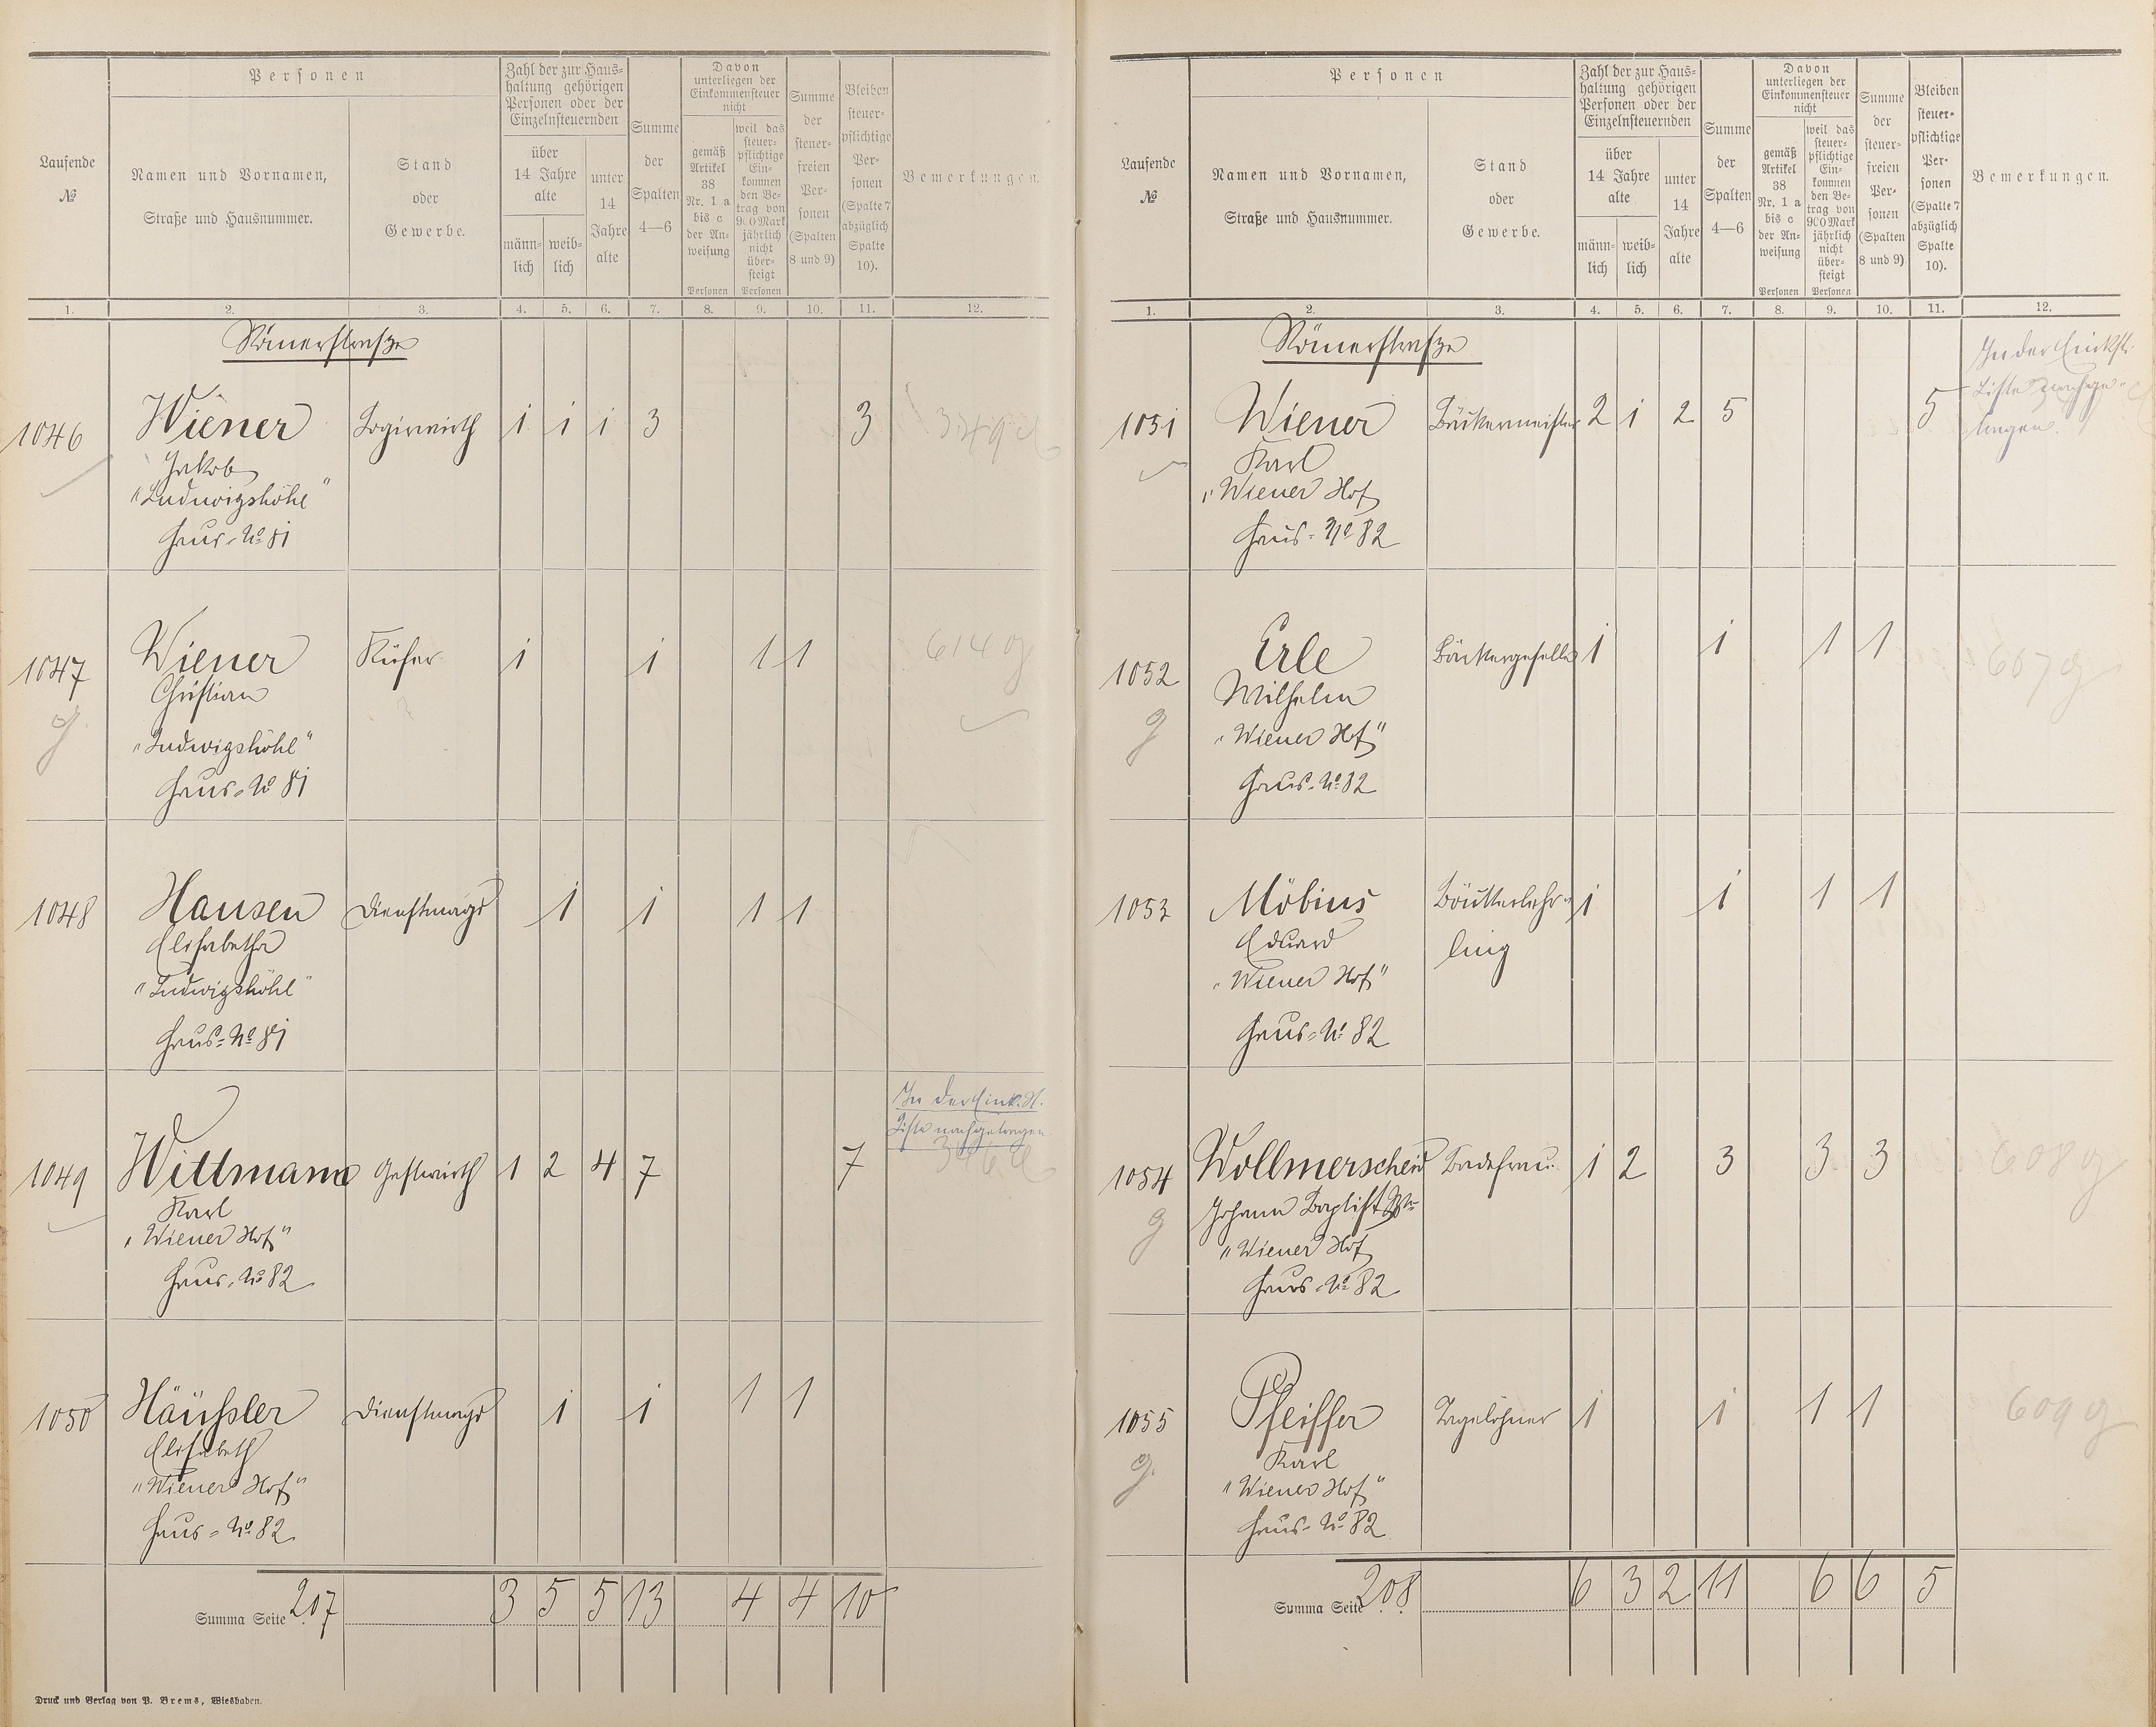 Personen
Zahl der zur Haus-
haltung gehörigen
Personen oder der
Einzelnsteuernden
Davon
unterliegen der
Einkommensteuer
nicht
Laufende
№
Namen und Vornamen,
Straße und Hausnummer.
Stand
oder
Gewerbe.
über
14 Jahre
alte
männ-
lich
weib-
lich
unter
14
Jahre
alte
Summe
der
Spalten
4—6
gemäß
Artikel
38
Nr. 1 a
bis c
der An-
weisung
Personen
weil das
steuer-
pflichtige
Ein-
kommen
den Be-
trag von
900 Mark
jährlich
nicht
über-
steigt
Personen
Summe
der
steuer-
freien
Per-
sonen
(Spalten
8 und 9)
Bleiben
steuer-
pflichtige
Per-
sonen
(Spalte 7
abzüglich
Spalte
10).
Bemerkungen.
1. 2. 3. 4. 5. 6. 7. 8. 9. 10. 11. 12.
Römerstraße
1046 Wiener Logirwirth 1 1 1 3 3
Jakob
"Ludwigshöhe"
Haus-No 81
1047 Wiener Küfer 1 1 1 1 614 g
Christian
g
"Ludwigshöhe"
Haus-No 81
1048 Hansen Dienstmagd 1 1 1 1
Elisabetha
"Ludwigshöhe"
Haus-No 81
In der Eink. St.
Liste nachgetragen
1049 Wittmann Gastwirth 1 2 4 7 7
Karl
"Wiener Hof"
Haus-No 82
1050 Häußler Dienstmagd 1 1 1 1
Elisabeth
"Wiener Hof"
Haus-No 82
Summa Seite 207 3 5 5 13 4 4 10
Druck und Verlag von P. Brems, Wiesbaden.
Personen
Zahl der zur Haus-
haltung gehörigen
Personen oder der
Einzelnsteuernden
Davon
unterliegen der
Einkommensteuer
nicht
Laufende
№
Namen und Vornamen,
Straße und Hausnummer.
Stand
oder
Gewerbe.
über
14 Jahre
alte
männ-
lich
weib-
lich
unter
14
Jahre
alte
Summe
der
Spalten
4—6
gemäß
Artikel
38
Nr. 1 a
bis c
der An-
weisung
Personen
weil das
steuer-
pflichtige
Ein-
kommen
den Be-
trag von
900 Mark
jährlich
nicht
über-
steigt
Personen
Summe
der
steuer-
freien
Per-
sonen
(Spalten
8 und 9)
Bleiben
steuer-
pflichtige
Per-
sonen
(Spalte 7
abzüglich
Spalte
10).
Bemerkungen.
1. 2. 3. 4. 5. 6. 7. 8. 9. 10. 11. 12.
Römerstraße
In der Einkst.
Liste nachge-
tragen.
1051 Wiener Bäckermeister 2 1 2 5 5
Karl
"Wiener Hof
Haus-No 82
1052 Erle Bäckergeselle 1 1 1 1 607 g
Wilhelm
g
"Wiener Hof"
Haus-No 82
1053 Möbius Bäckerlehr- 1 1 1 1
Eduard
ling
"Wiener Hof"
Haus-No 82
1054 Vollmerscheid Badefrau 1 2 3 3 3 608 g
Johann Baptist Ww
g
"Wiener Hof
Haus-No 82
1055 Pfeiffer Tagelöhner 1 1 1 1 609 g
Karl
g
"Wiener Hof"
Haus-No 82
Summa Seite 208 6 3 2 11 6 6 5